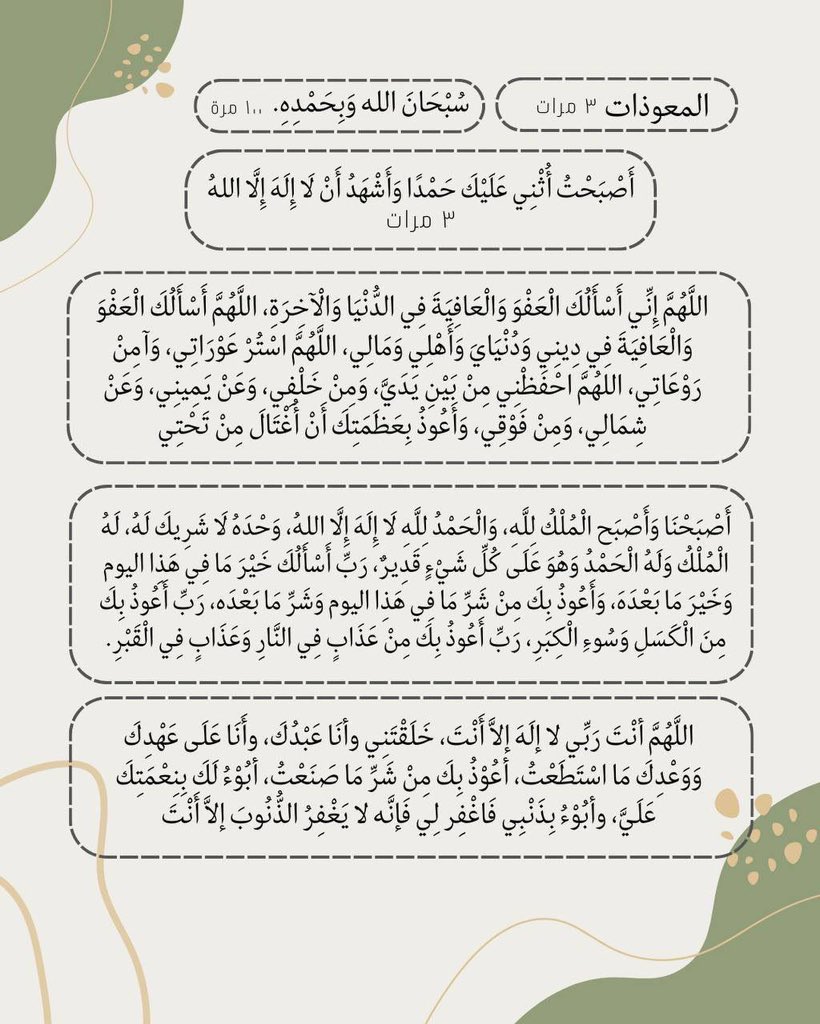 المعوذات ٣ مرات
سُبْحَانَ الله وَبِحَمْدِهِ. ١٠٠ مرة
أَصْبَحْتُ أُثْنِي عَلَيْكَ حَمْدًا وَأَشْهَدُ أَنْ لَا إِلَهَ إِلَّا اللهُ
٣ مرات
اللَّهُمَّ إِنِّي أَسْأَلُكَ الْعَفْوَ وَالْعَافِيَةَ فِي الدُّنْيَا وَالْآخِرَةِ، اللَّهُمَّ أَسْأَلُكَ الْعَفْوَ
وَالْعَافِيَةَ فِي دِينِي وَدُنْيَايَ وَأَهْلِي وَمَالِي، اللَّهُمَّ اسْتُرْ عَوْرَاتِي، وَآمِنْ
رَوْعَاتِي، اللهُمَّ احْفَظْنِي مِنْ بَيْنِ يَدَيَّ، وَمِنْ خَلْفِي، وَعَنْ يَمِينِي، وَعَنْ
شِمَالِي، وَمِنْ فَوْقِي، وَأَعُوذُ بِعَظَمَتِكَ أَنْ أُغْتَالَ مِنْ تَحْتِي
أَصْبَحْنَا وَأَصْبَح الْمُلْكُ لِلَّهِ، وَالْحَمْدُ لِلَّهِ لَا إِلَهَ إِلَّا اللهُ، وَحْدَهُ لَا شَرِيكَ لَهُ، لَهُ
الْمُلْكُ وَلَهُ الْحَمْدُ وَهُوَ عَلَى كُلِّ شَيْءٍ قَدِيرٌ، رَبِّ أَسْأَلُكَ خَيْرَ مَا فِي هَذا اليوم
وَخَيْرَ مَا بَعْدَهَ، وَأَعُوذُ بِكَ مِنْ شَرِّ مَا فِي هَذِا اليوم وَشَرِّ مَا بَعْدَه، رَبِّ أَعُوذُ بِكَ
مِنَ الْكَسَلِ وَسُوءِ الْكِبَرِ، رَبِّ أَعُوذُ بِكَ مِنْ عَذَابٍ فِي النَّارِ وَعَذَابٍ فِي الْقَبْرِ.
اللَّهُمَّ أنْتَ رَبِّي لا إلَهَ إلاَّ أَنْتَ، خَلَقْتَنِي وأنَا عَبْدُكَ، وأَنَا عَلَى عَهْدِكَ
وَوَعْدِكَ مَا اسْتَطَعْتُ، أعُوْذُ بِكَ مِنْ شَرِّ مَا صَنَعْتُ، أبُوْءُ لَكَ بِنِعْمَتِكَ
عَلَيَّ، وأبُوْءُ بِذَنْبِي فَاغْفِر لِي فَإنَّه لا يَغْفِرُ الذُّنُوبَ إلاَّ أَنْتَ